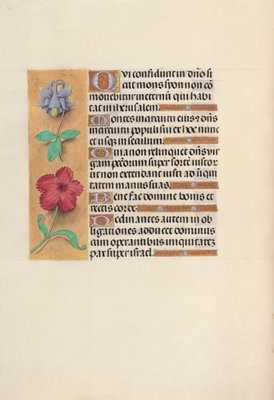 Qui confidunt in dño si
cut mons syon non cõ
mouebitur in eternũ qui habi
tat in iherusalem.
Montes in circuitu eius et dñs
in circuitu populi sui ex hoc nunc
et usq; in seculum.
Quia non relinquet dñs uir
gam peccatorum super sortẽ iustor
ut non extendant iusti ad iniqui
tatem manus suas.
Bene fac domine bonis et
rectis corde.
Declinantes autem in ob
ligationes adducet dominus
cum operantibus iniquitatẽ
pax super israel.